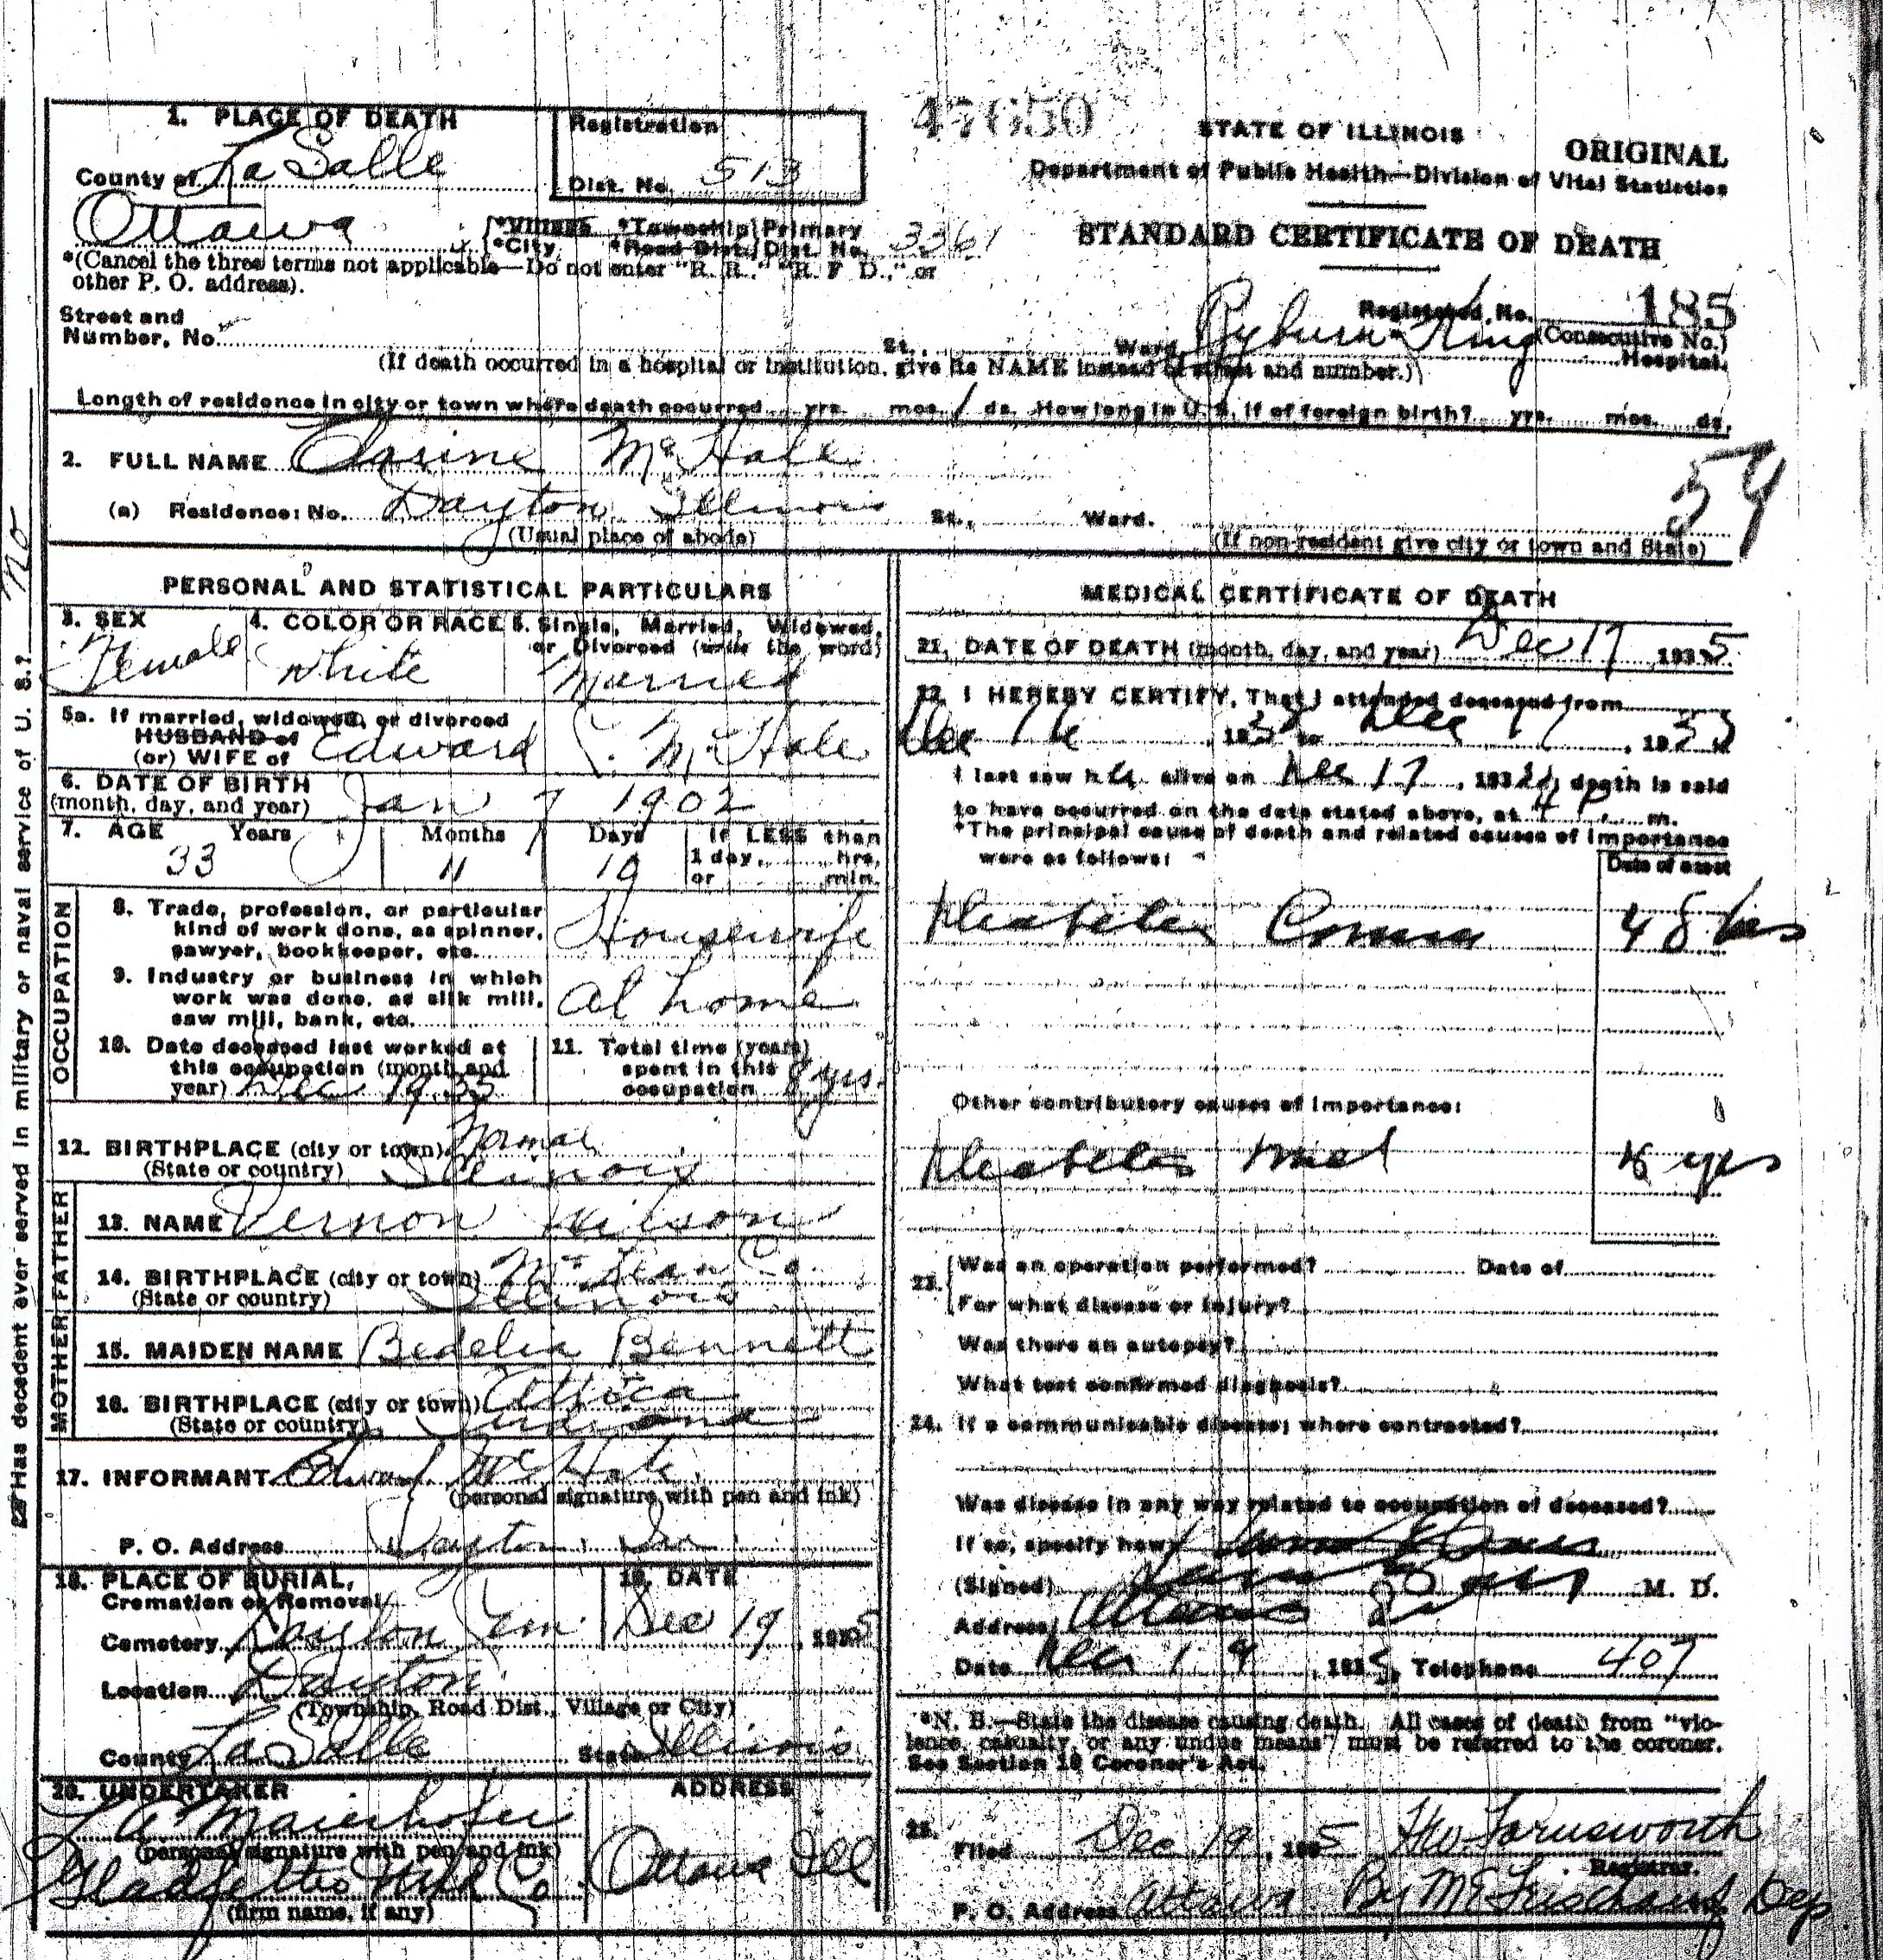 47650
STATE OF ILLINOIS
ORIGINAL
Department of Public Health—Division of Vital Statistics
STANDARD CERTIFICATE OF DEATH
1. PLACE OF DEATH
County of La Salle
Registration
Dist. No. 513
Ottawa
*Village *Township Primary
*City *Road Dist. Dist. No. 3361
*(Cancel the three terms not applicable—Do not enter "R. R.," "R. F. D.," or
other P. O. address).
Registered No. 185
(Consecutive No.)
Street and
Number, No. St., Ward, Ryburn King Hospital.
(If death occurred in a hospital or institution, give its NAME instead of street and number.)
Length of residence in city or town where death occurred yrs. mos. 1 ds. How long in U. S. if of foreign birth? yrs. mos. ds.
2. FULL NAME McHale
54
(a) Residence: No. Dayton Illinois St., Ward.
(Usual place of abode) (If non-resident give city or town and State)
Has decedent ever served in military or naval service of U. S.? no
PERSONAL AND STATISTICAL PARTICULARS
3. SEX
Female
4. COLOR OR RACE
White
5. Single, Married, Widowed,
or Divorced (write the word)
Married
5a. If married, widowed, or divorced
HUSBAND of
(or) WIFE of Edward McHale
6. DATE OF BIRTH
(month, day, and year) Jan 7 1902
7. AGE Years Months Days If LESS than
1 day, hrs.
or min.
33 11 10
OCCUPATION
8. Trade, profession, or particular
kind of work done, as spinner,
sawyer, bookkeeper, etc. Housewife
9. Industry or business in which
work was done, as silk mill,
saw mill, bank, etc. At home
10. Date deceased last worked at
this occupation (month and
year) Dec 1935
11. Total time (years)
spent in this
occupation 8 yrs.
12. BIRTHPLACE (city or town) Normal
(State or country) Illinois
FATHER
13. NAME Vernon Wilson
14. BIRTHPLACE (city or town) McLean Co.
(State or country) Illinois
MOTHER
15. MAIDEN NAME Bedelia Bennett
16. BIRTHPLACE (city or town) Attica
(State or country) Indiana
17. INFORMANT Edward McHale
(personal signature with pen and ink)
P. O. Address Dayton, Ill
18. PLACE OF BURIAL,
Cremation or Removal
Cemetery Dayton Cem
19. DATE
Dec 19, 1935
Location Dayton
(Township, Road Dist., Village or City)
County La Salle State Illinois
20. UNDERTAKER
L A Maierhofer
(personal signature with pen and ink)
(firm name, if any)
ADDRESS
Ottawa Ill
MEDICAL CERTIFICATE OF DEATH
21. DATE OF DEATH (month, day, and year) Dec 17 1935
22. I HEREBY CERTIFY, That I attended deceased from
Dec 16, 1935 to Dec 17, 1935
I last saw her alive on Dec 17, 1935, death is said
to have occurred on the date stated above, at 4 P. m.
*The principal cause of death and related causes of importance
were as follows:
Date of onset
Diabetes Coma 48 hrs
Other contributory causes of importance:
Diabetes Mel yrs
23. Was an operation performed? Date of
For what disease or injury?
Was there an autopsy?
What test confirmed diagnosis?
24. If a communicable disease; where contracted?
Was disease in any way related to occupation of deceased?
If so, specify how
(Signed) M. D.
Address Ottawa Ill
Date Dec 19, 1935, Telephone 407
*N. B.—State the disease causing death. All cases of death from "vio-
lence, casualty, or any undue means" must be referred to the coroner.
See Section 10 Coroner's Act.
25. Filed Dec 19, 1935 Farnsworth
Registrar.
P. O. Address Ottawa. By Dep